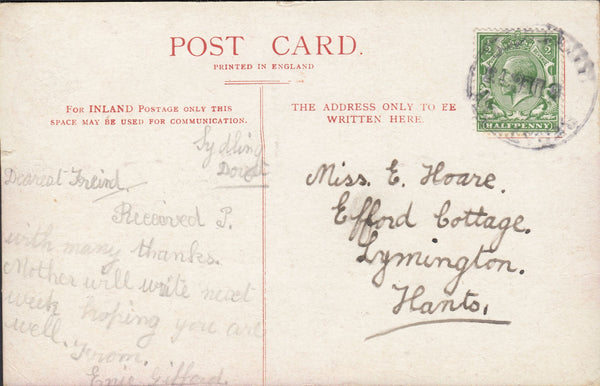 POST CARD.
PRINTED IN ENGLAND
FOR INLAND POSTAGE ONLY THIS
SPACE MAY BE USED FOR COMMUNICATION.
THE ADDRESS ONLY TO BE
WRITTEN HERE.
HALFPENNY
Sydling
Dorset
Dearest Freind.
Received P.
with many thanks.
Mother will write next
week hoping you are
well.
From.
Gifford.
Miss. E. Hoare.
Efford Cottage.
Lymington.
Hants,